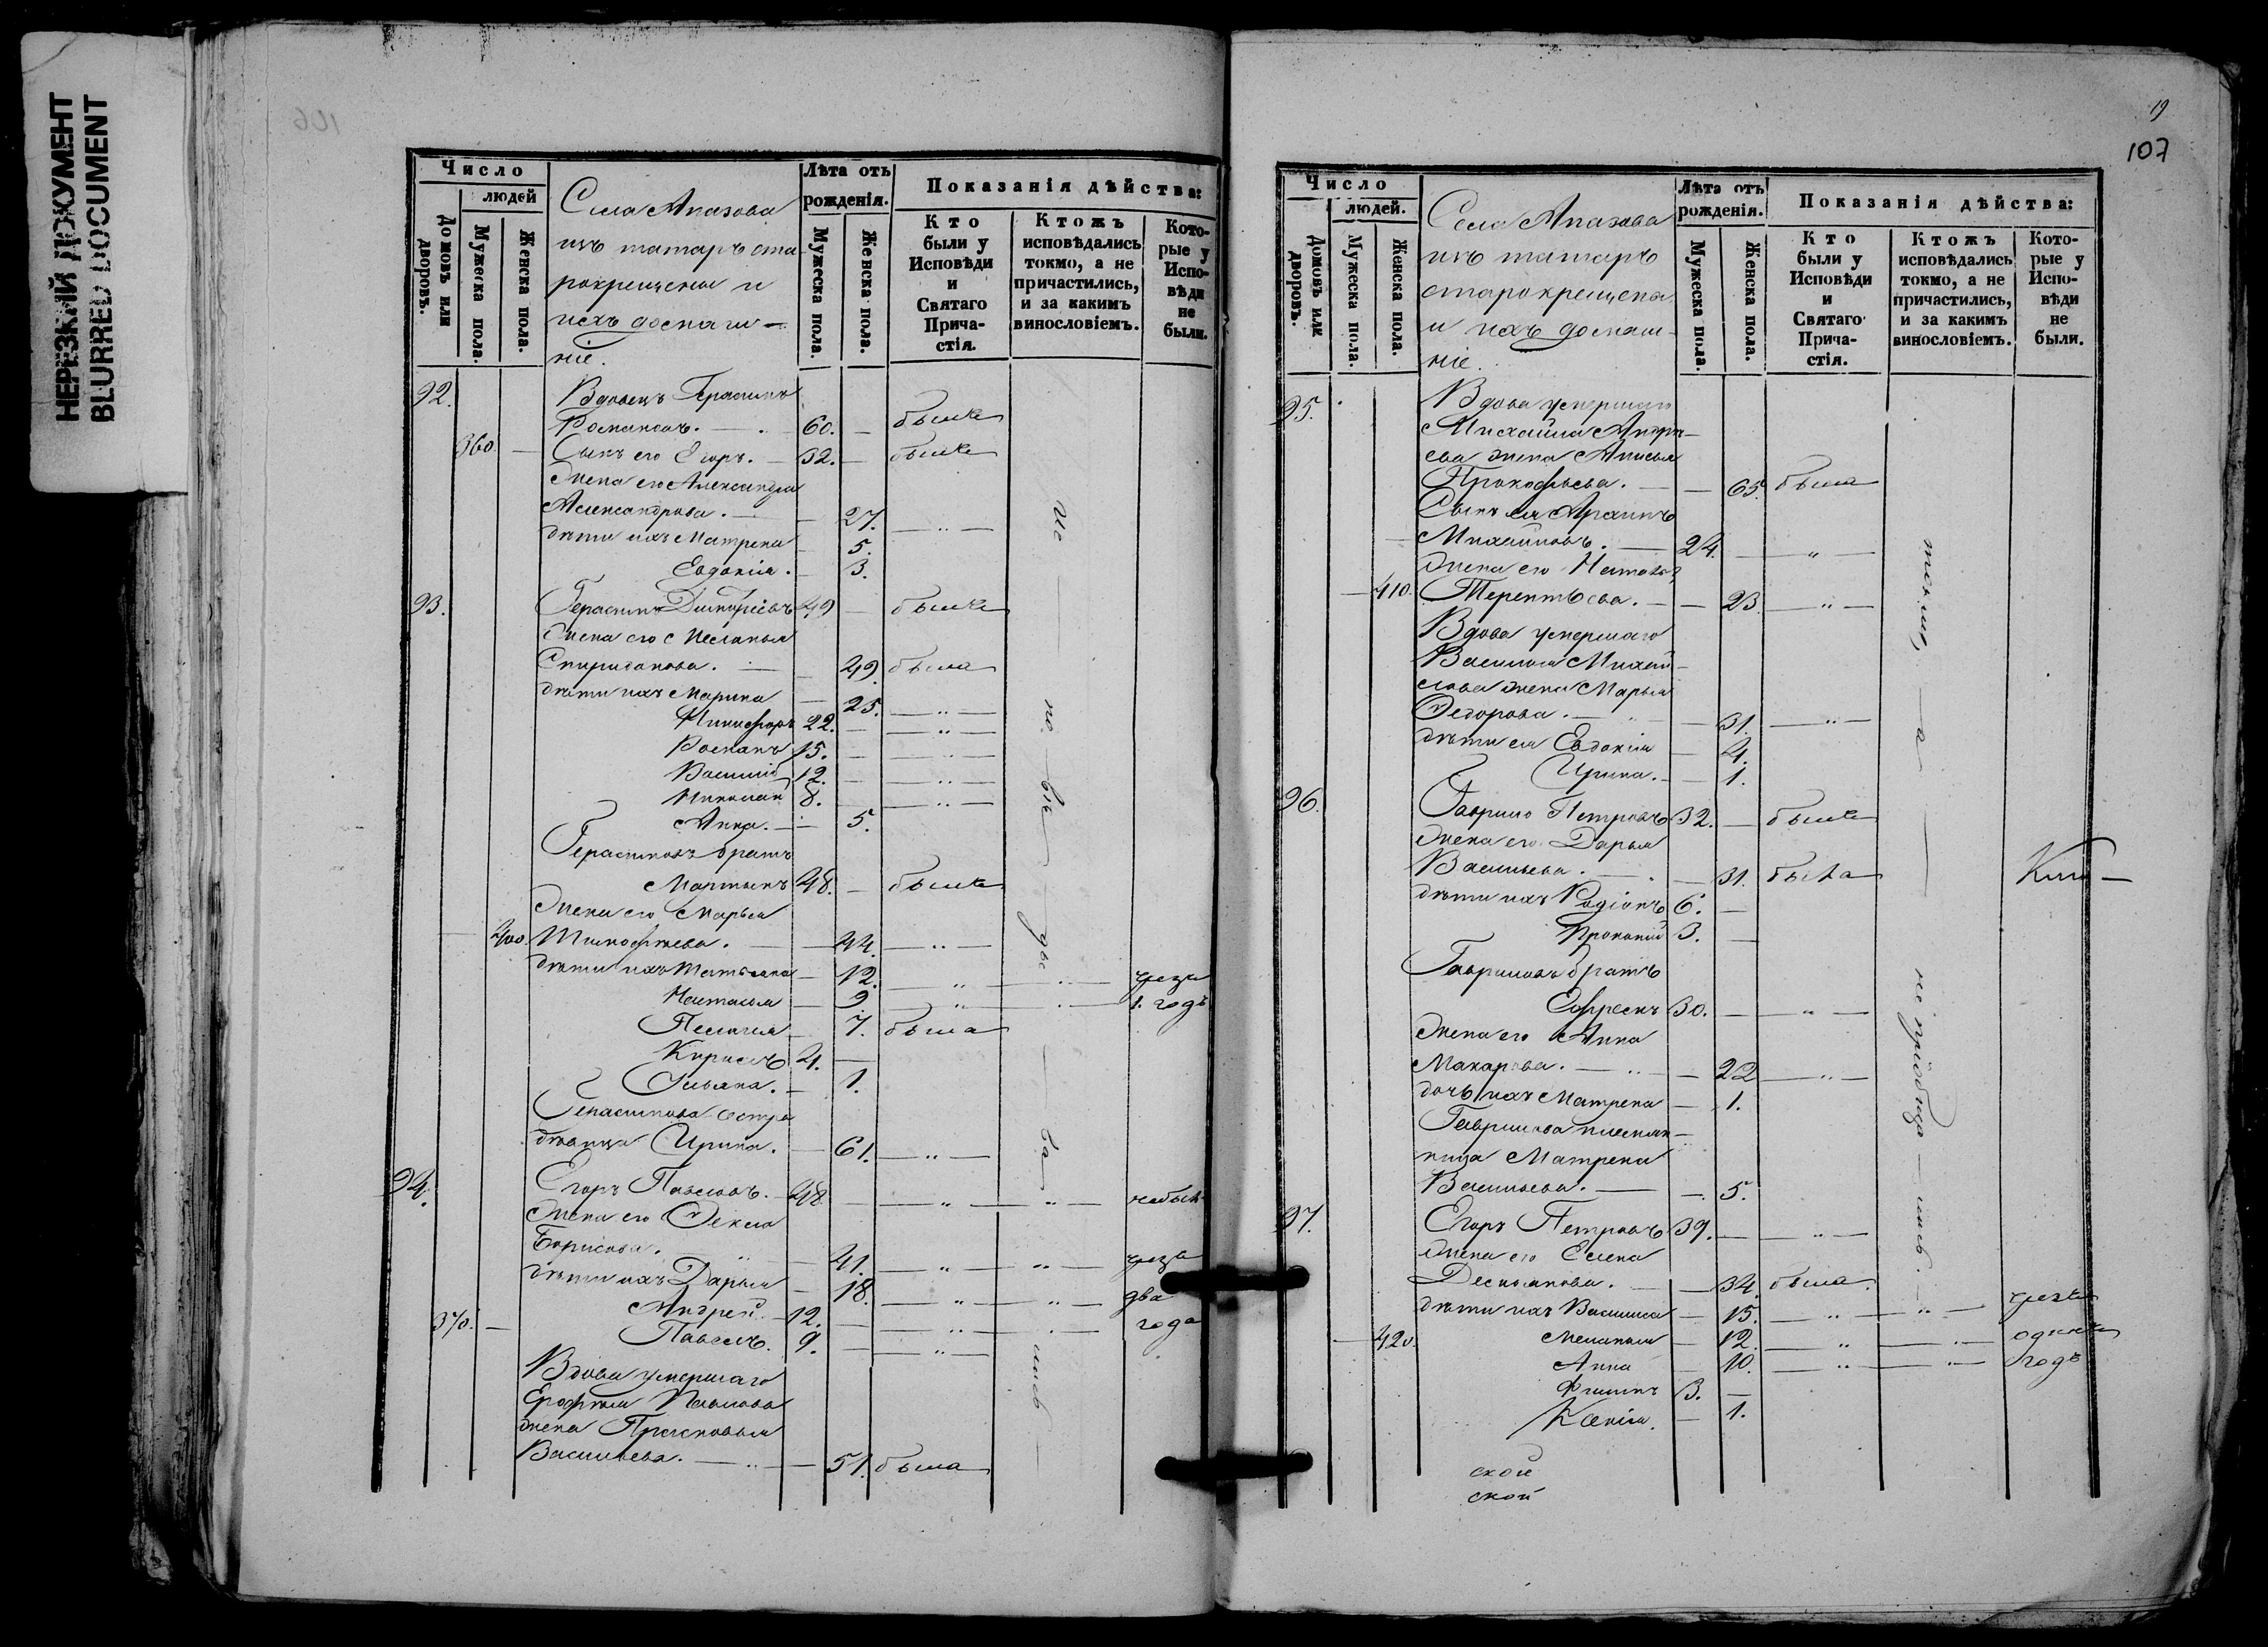 НЕРЕЗКИЙ ДОКУМЕНТ
BLURRED DOCUMENT
106
Число
людей
Домовъ или дворовъ.
Мужеска пола.
Женска пола.
Села Апазова
изъ татаръ ста-
рокрещены и
ихъ домаш-
ніе.
Лѣта отъ рожденія.
Мужеска пола.
Женска пола.
Показанія дѣйства:
Кто были у Исповѣди и Святаго Прича-стія.
Ктожъ исповѣдались токмо, а не причастились, и за какимъ винословіемъ.
Кото-рые у Испо-вѣди не были.
92. Вдовецъ Герасимъ
Романовъ. 60. — былъ
360. — Сынъ его Егоръ. — 32. — былъ
Жена его Александра
Александрова. — — 27. — „ —
дѣти ихъ Матрена — 5.
Евдокія. — 3.
93. Герасимъ Димитріевъ 49 — былъ
Жена его Меланья
Спиридонова. — 49. была
дѣти ихъ Марина — 25. — „ —
Никифоръ 22. — — „ —
Романъ 15. — — „ —
Василій 12. — — „ —
Николай 8. — — „ —
Анна. — 5.
Герасимовъ братъ
Мартынъ 48. — былъ
Жена его Марья
400. Тимофѣева. — 44. — „ —
дѣти ихъ Татьяна — 12. — „ — „ — чрезъ
Настасья — 9 — „ — „ — 1. годъ
Пелагея — 7. была
Кирилъ 4. —
Ульяна. — 1.
Герасимова сестра
дѣвица Ирина. — 61. — „ —
94. Егоръ Павловъ. — 48 — — „ — „ — небылъ
Жена его Фекла
Борисова. „ — 41. — „ — „ — чрезъ
дѣти ихъ Дарья — 18. — „ — „ — два
Андрей — 12. — — „ — „ — года
370. — Павелъ. 9. — — „ —
Вдова умершаго
Ерофѣя Павлова
жена Прасковья
Васильева. — „ — — 51. была
не — по — вѣ — ды — ва — лись —
19
107
Число
людей.
Домовъ или дворовъ.
Мужеска пола.
Женска пола.
Села Апазова
изъ татаръ
старокрещены
и ихъ домаш-
ніе.
Лѣта отъ рожденія.
Мужеска пола.
Женска пола.
Показанія дѣйства:
Кто были у Исповѣди и Святаго Прича-стія.
Ктожъ исповѣдались токмо, а не причастились, и за какимъ винословіемъ.
Кото-рые у Испо-вѣди не были.
95. Вдова умершаго
Михайла Андре-
ева жена Анисья
Прокофьева. — — 65. была
Сынъ ея
Михайловъ. — 24. — — „ —
Жена его Настасья
— 410. Терентьева. — — 23. — „ —
Вдова умершаго
Василья Михай-
лова жена Марья
Федорова. — „ — 31. — „ —
дѣти ея Евдокія — 4.
Ирина. — 1.
96. Гаврило Петровъ 32. — былъ
Жена его Дарья
Васильева. — 31. была
дѣти ихъ Родіонъ 6. —
Прокопій 3. —
Гавриловъ братъ
Ефремъ 30. — — „ —
Жена его Анна
Макарова. — „ — — 22 — „ —
дочь ихъ Матрена — 1.
Гаврилова племян-
ница Матрена
Васильева. — — 5.
97. Егоръ Петровъ 39. — — „ —
Жена его Елена
Демьянова. — 34. была
дѣти ихъ Василиса — 15. — „ — „ — чрезъ
— 420. Меланья — 12. — „ — „ — одинъ
Анна — 10. — „ — „ — годъ
Филипъ 3. —
Ксенія. — 1.
ской
ской
только, а — не пріобща — лись —